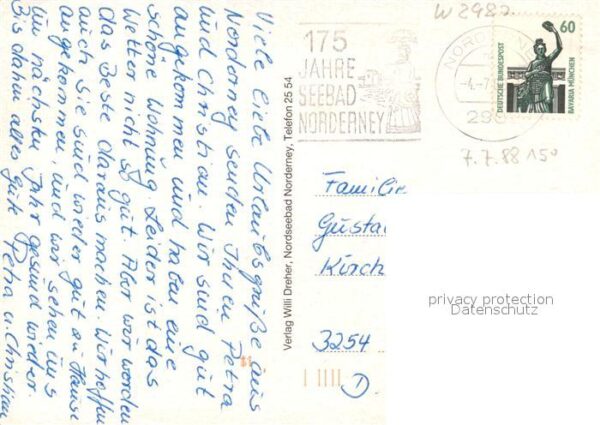 Viele liebe Urlaubsgrüße aus
Norderney senden Ihnen Petra
und Christian. Wir sind gut
angekommen und haben eine
schöne Wohnung. Leider ist das
Wetter nicht so gut. Aber wir werden
das Beste daraus machen. Wir hoffen
auch Sie sind wieder gut zu Hause
angekommen, und wir sehen uns
im nächsten Jahr gesund wieder.
Bis dahin alles Gute Petra u. Christian
Verlag Willi Dreher, Nordseebad Norderney, Telefon 25 54
W 2987
175
JAHRE
SEEBAD
NORDERNEY
60
DEUTSCHE BUNDESPOST
BAVARIA MÜNCHEN
7.7.88 150
Familie
Gusta
Kirch
3254
D
privacy protection
Datenschutz